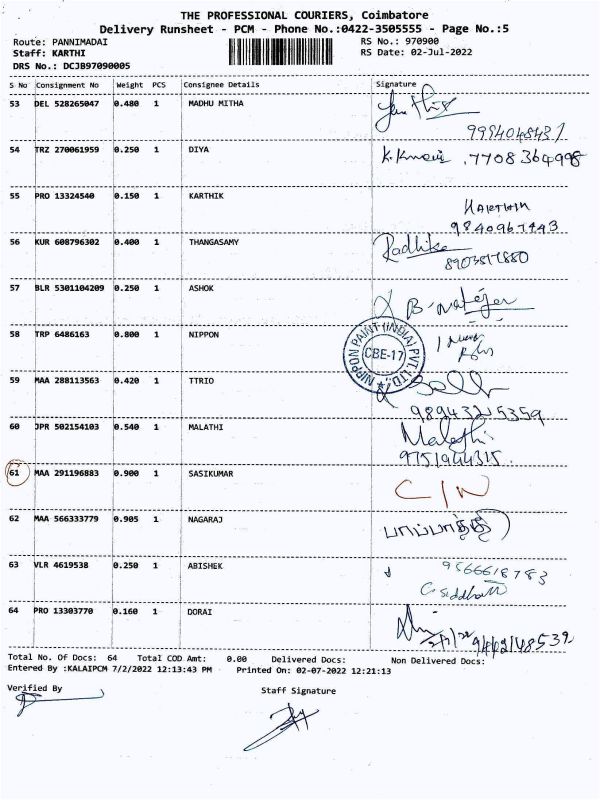 THE PROFESSIONAL COURIERS, Coimbatore
Delivery Runsheet - PCM - Phone No.:0422-3505555 - Page No.:5
Route: PANNIMADAI RS No.: 970900
Staff: KARTHI RS Date: 02-Jul-2022
DRS No.: DCJB97090005
S No Consignment No Weight PCS Consignee Details Signature
53 DEL 528265047 0.480 1 MADHU MITHA
9994048431
54 TRZ 270061959 0.250 1 DIYA 7708364998
55 PRO 13324540 0.150 1 KARTHIK KARTHIK
9840967443
56 KUR 608796302 0.400 1 THANGASAMY Radhika
8903817880
57 BLR 5301104209 0.250 1 ASHOK
58 TRP 6486163 0.800 1 NIPPON NIPPON PAINT (INDIA) PVT. LTD. CBE-17
59 MAA 288113563 0.420 1 TTRIO
98943215359
60 JPR 502154103 0.540 1 MALATHI Malathi
9751944315
61 MAA 291196883 0.900 1 SASIKUMAR C/N
62 MAA 566333779 0.905 1 NAGARAJ
63 VLR 4619538 0.250 1 ABISHEK 9566618783
C. Siddharth
64 PRO 13303770 0.160 1 DORAI 9442148532
Total No. Of Docs: 64 Total COD Amt: 0.00 Delivered Docs: Non Delivered Docs:
Entered By :KALAIPCM 7/2/2022 12:13:43 PM Printed On: 02-07-2022 12:21:13
Verified By Staff Signature